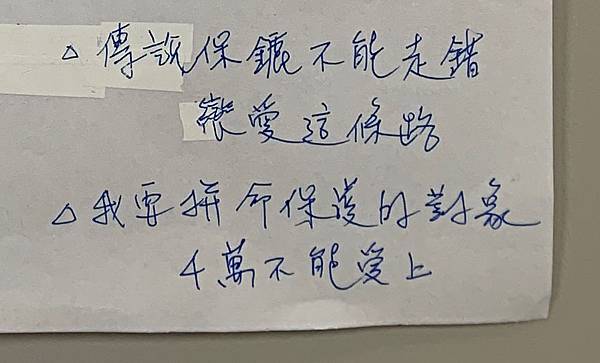 △傳說保鑣不能走錯
戀愛這條路
△我要拼命保護的對象
千萬不能愛上